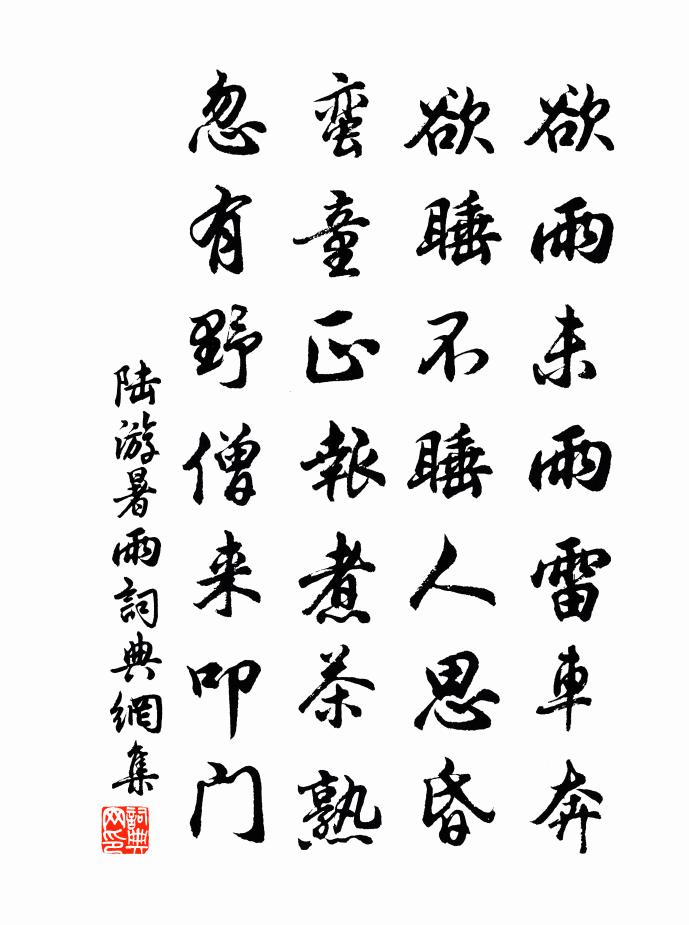 欲雨未雨雷車奔
欲睡不睡人思昏
蛮童正報煮茶熟
忽有野僧来叩门
陆游暑雨詞典網集
詞典网印